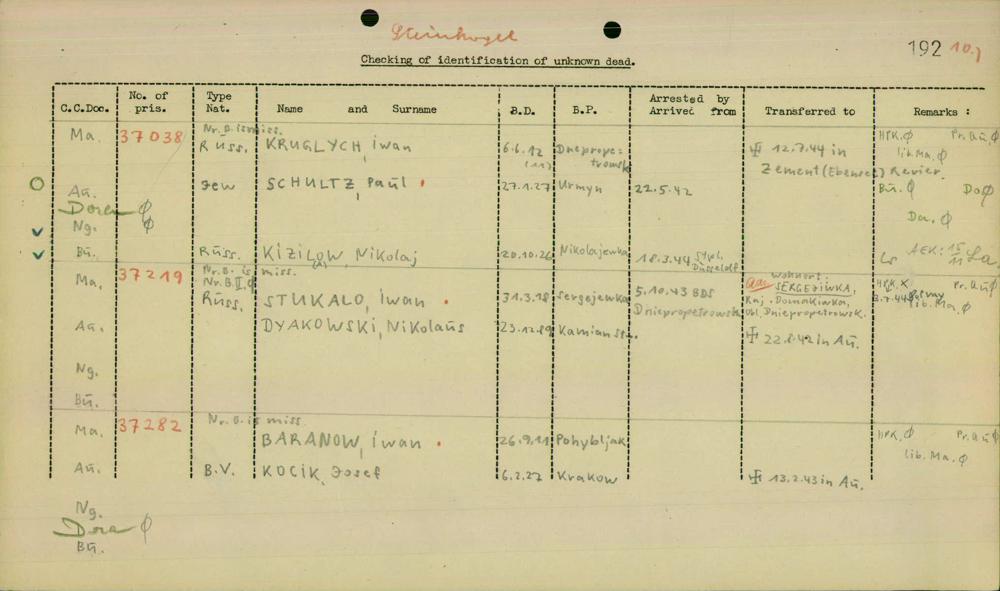 Steinkogel
192 10.)
Checking of identification of unknown dead.
C.C.Doc. No. of pris. Type Nat. Name and Surname B.D. B.P. Arrested by Arrived from Transferred to Remarks :
Nr. B. is miss.
Ma. 37038 Russ. KRUGLYCH, iwan 6.6.12 (11) Dneprope= trowsk 12.7.44 in Zement (Ebensee) Revier. HPK. Ø Pr. Aü. Ø lib. Ma. Ø
Aü. Jew SCHULTZ, Paul 27.1.27 Urmyn 22.5.42 Bü. Ø Do Ø
Dora Ø
Da. Ø
Ng. Ø
Bü. Russ. KiZiLOW, Nikolaj 20.10.26 Nikolajewka 18.3.44 Stpl. Düsseldorf Ls AEK: 15/11
Nr. B. is miss.
Nr. B. II. Ø
Ma. 37219 Russ. STUKALO, iwan 31.3.18 Sergejewka 5.10.43 BDS Dniepropetrowsk wohnort: SERGEZIWKA, Raj. Domakiwka, Obl. Dniepropetrowsk. HPK. X Pr. Aü Ø lib. Ma. Ø
Aü. DYAKOWSKi, Nikolaüs 23.12.89 Kamian 22.8.42 in Aü.
Ng.
Bü.
Nr. B. is miss.
Ma. 37282 BARANOW, iwan 26.9.11 Pohybljak HPK. Ø Pr. Aü Ø lib. Ma. Ø
Aü. B.V. KOCiK, Josef 6.2.27 Krakow 13.2.43 in Aü.
Ng.
Dora Ø
Bü.